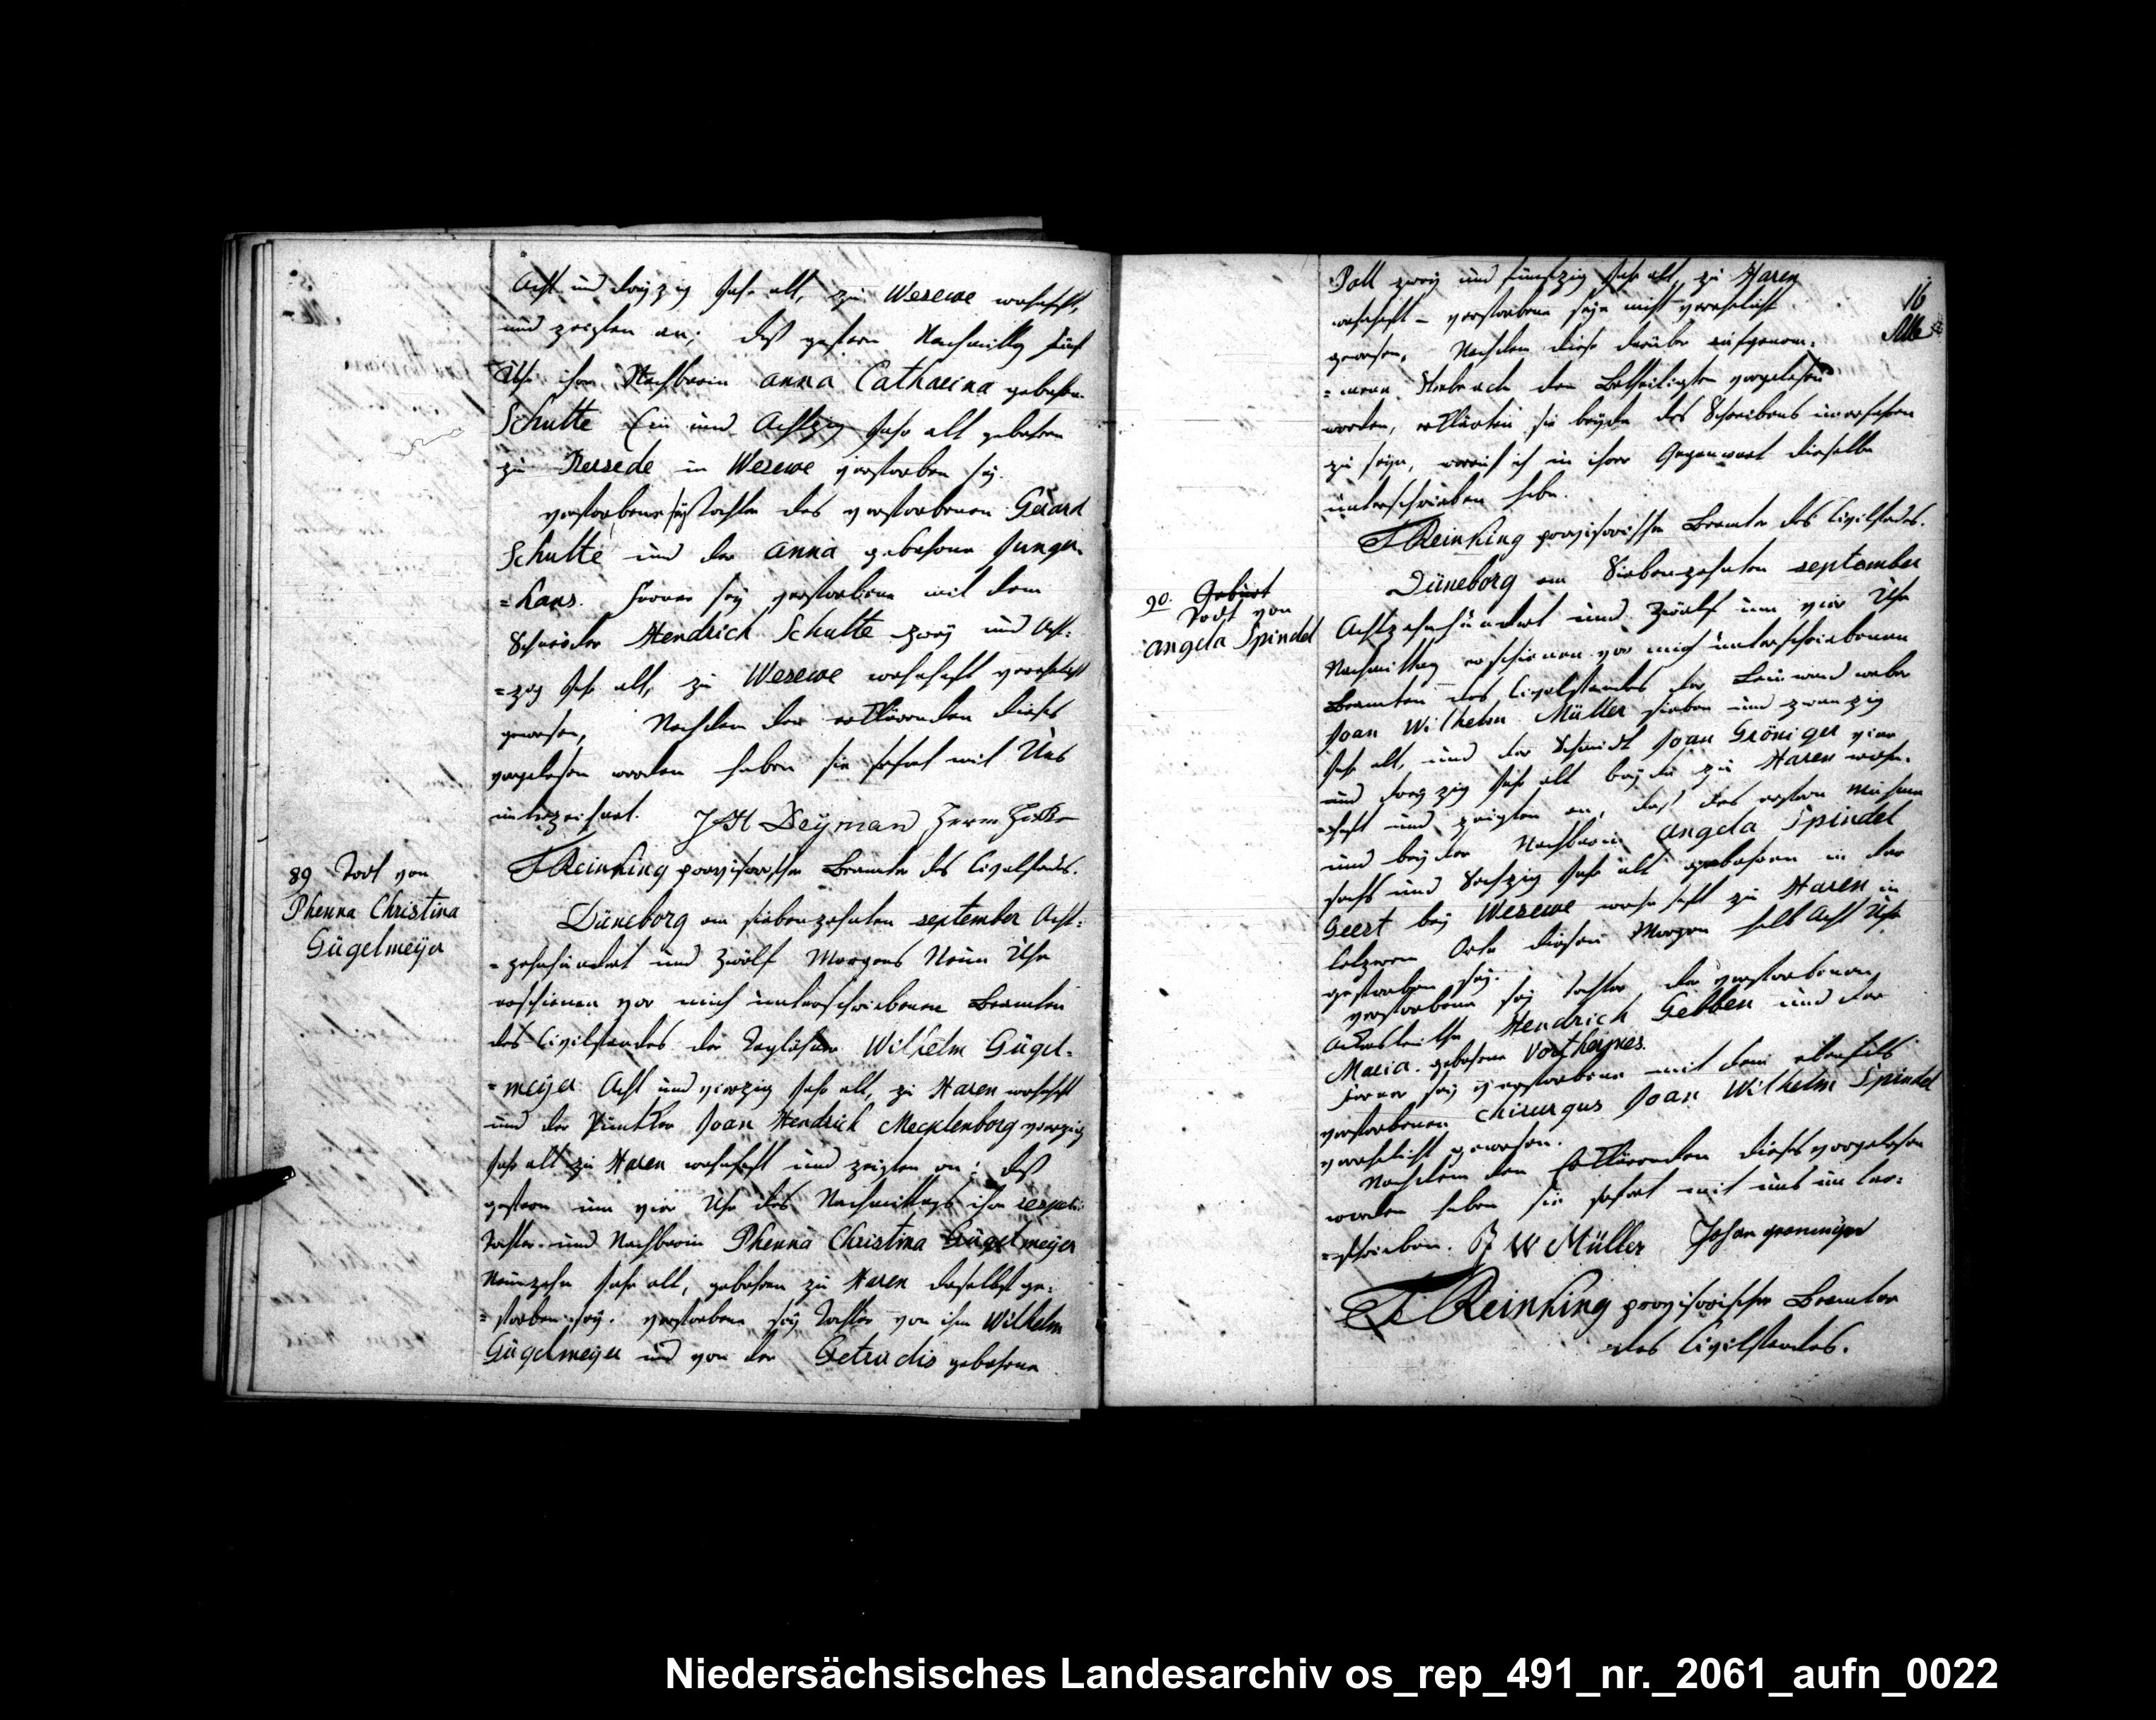 Acht und dreyzig Jahr alt, zu Wesewe wohnhaft,
und zeigten an; daß gestern Nachmittag fünf
Uhr ihre Nachbarin Anna Catharina gebohrne
Schulte Ein und Achtzig Jahr alt gebohren
zu in Wesewe verstorben sey.
verstorbene sey Tochter des verstorbenen Gerard
Schulte und der Anna gebohrne Junger-
=hans. Ferner sey verstorbene mit dem
Schneider Hendrich Schulte zwey und Acht=
=zig Jahr alt, zu Wesewe wohnhaft verehelicht
gewesen, Nachdem den erklärenden dieses
vorgelesen worden haben sie sofort mit Uns
unterzeichnet. JH Deyman Herm
T Reinking provisorischer Beamter des Civilstands.
89 Tod von
Phenna Christina
Gügelmeÿer
Düneborg am siebenzehnten september Acht=
=zehnhundert und Zwölf Morgens Neun Uhr
erschienen vor mich unterschriebenen Beamten
des Civilstandes der Taglöhner Wilhelm Gügel=
=meÿer Acht und vierzig Jahr alt, zu Haren wohnhaft
und der Joan Hendrich Mecklenborg vierzig
Jahr alt zu Haren wohnhaft und zeigten an: daß
gestern um vier Uhr des Nachmittags ihre respecti:
Tochter und Nachbarin Phenna Christina Gügelmeÿer
Neunzehn Jahr alt, gebohren zu Haren daselbst ge=
=storben sey. verstorbene sey Tochter von ihm Wilhelm
Gügelmeyer und von der Getrudis gebohrne
16
Poll zwey und fünfzig Jahr alt, zu Haren
wohnhaft – verstorbene seye nicht verehelicht
gewesen, Nachdem diese darüber aufgenom=
=mene Urkunde den Betheiligten vorgelesen
worden, erklärten sie beyde des Schreibens unerfahren
zu seyn, worauf ich in ihrer Gegenwart dieselbe
unterschrieben habe.
T Reinking provisorischer Beamter des Civilstandes.
90. Geburt
Todt von
Angela Spindel
Düneborg am Siebenzehnten september
Achtzehnhundert und Zwölf um vier Uhr
Nachmittag erschienen vor mich unterschriebenen
Beamten des Civilstandes der Leinwand weber
Joan Wilhelm Müller sieben und zwanzig
Jahr alt, und der Schmidt Joan Gröniger vier
und dreyzig Jahr alt beyde zu Haren wohn=
=haft und zeigten an, daß des erstern Muhme
und beyder Nachbarin Angela Spindel
sechs und Sechzig Jahr alt gebohren in der
Geest bey Wesewe wohnhaft zu Haren in
letzerem Orte diesen Morgen halb Acht Uhr
gestorben sey.
verstorbene sey Tochter der verstorbenen
Ackersleuthe Hendrich Gebben und der
Maria gebohrne Vortheÿnes.
Ferner sey verstorbene mit dem ebenfals
verstorbenen chirurgus Joan Wilhelm Spindel
verehelicht gewesen.
Nachdem den Erklärenden dieses vorgelesen
worden haben sie sofort mit uns unter=
=schrieben. J W Müller Johan groninger
T Reinking provisorischer Beamter
des Civilstandes.
Niedersächsisches Landesarchiv os_rep_491_nr._2061_aufn_0022